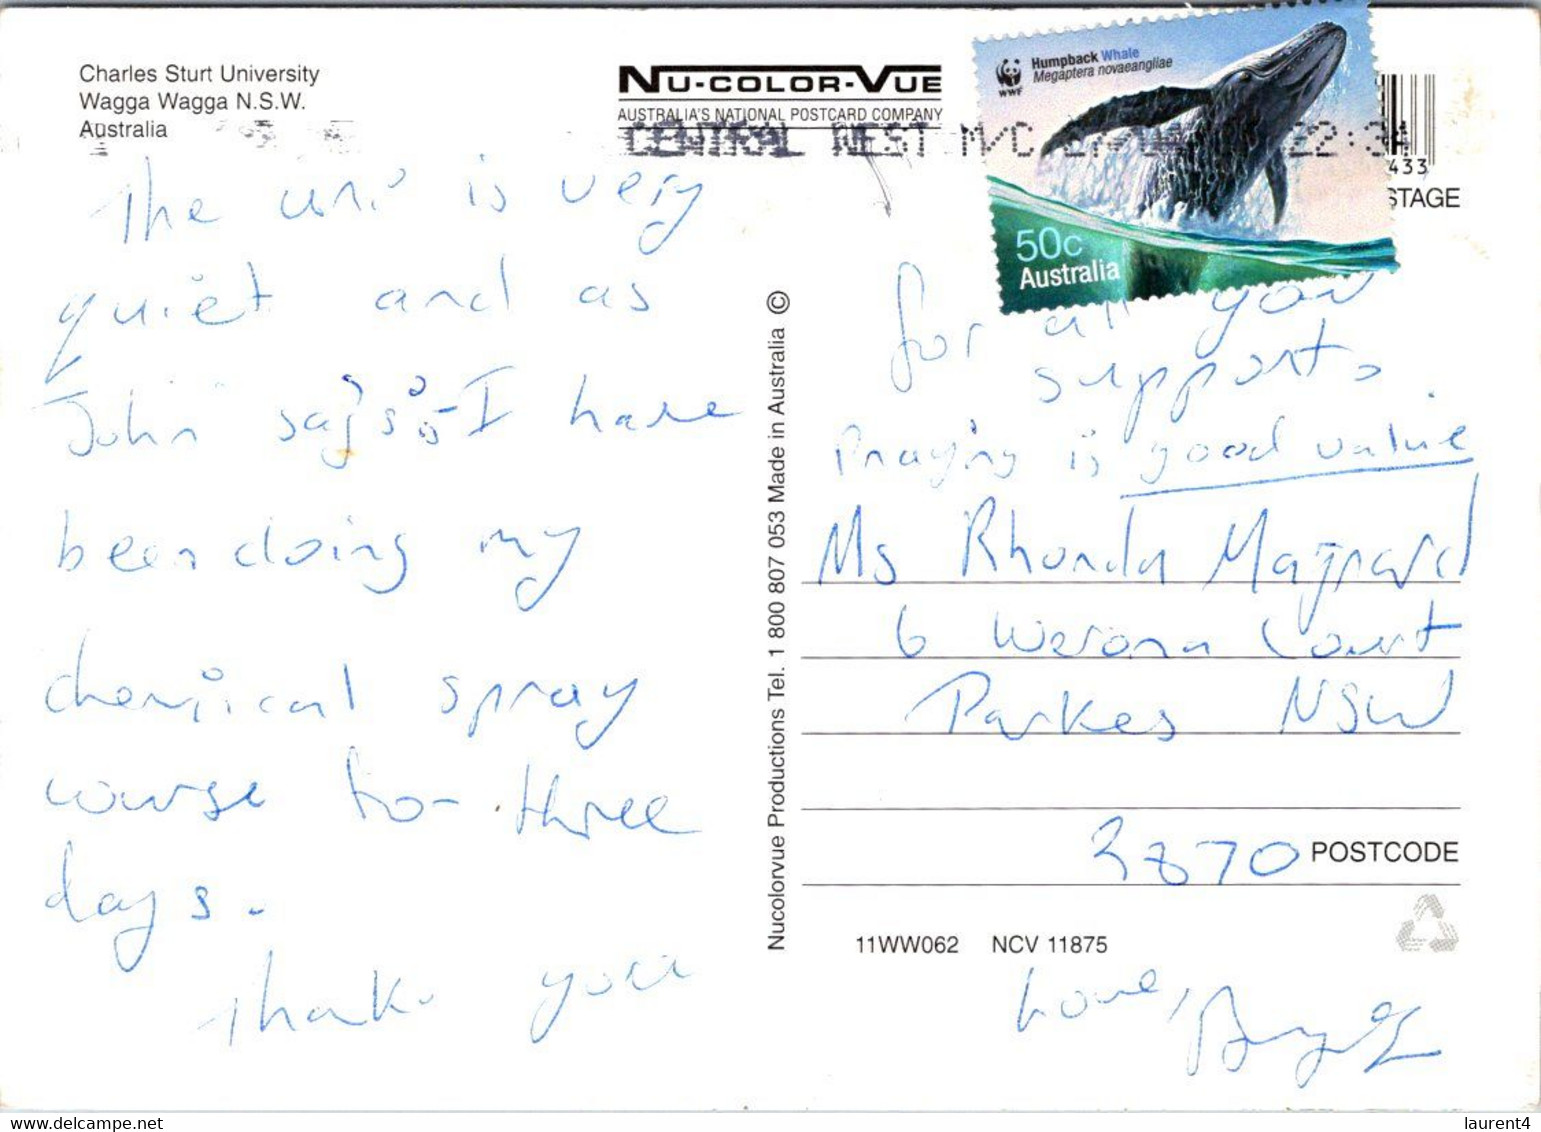 Charles Sturt University
Wagga Wagga N.S.W.
Australia
NU-COLOR-VUE
AUSTRALIA'S NATIONAL POSTCARD COMPANY
CENTRAL WEST M/C 22:34
Humpback Whale
Megaptera novaeangliae
WWF
50c
Australia
433
STAGE
The uni is very
quiet and as
John says I have
been doing my
chemical spray
course for three
days.
Thank you
for all you
supports.
Praying is good value
Ms Rhonda Maynard
6 Werona Court
Parkes NSW
2870 POSTCODE
Nucolorvue Productions Tel. 1 800 807 053 Made in Australia ©
11WW062 NCV 11875
Love,
laurent4